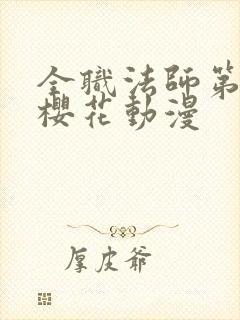 全職法師第
櫻花動漫
厚皮爺